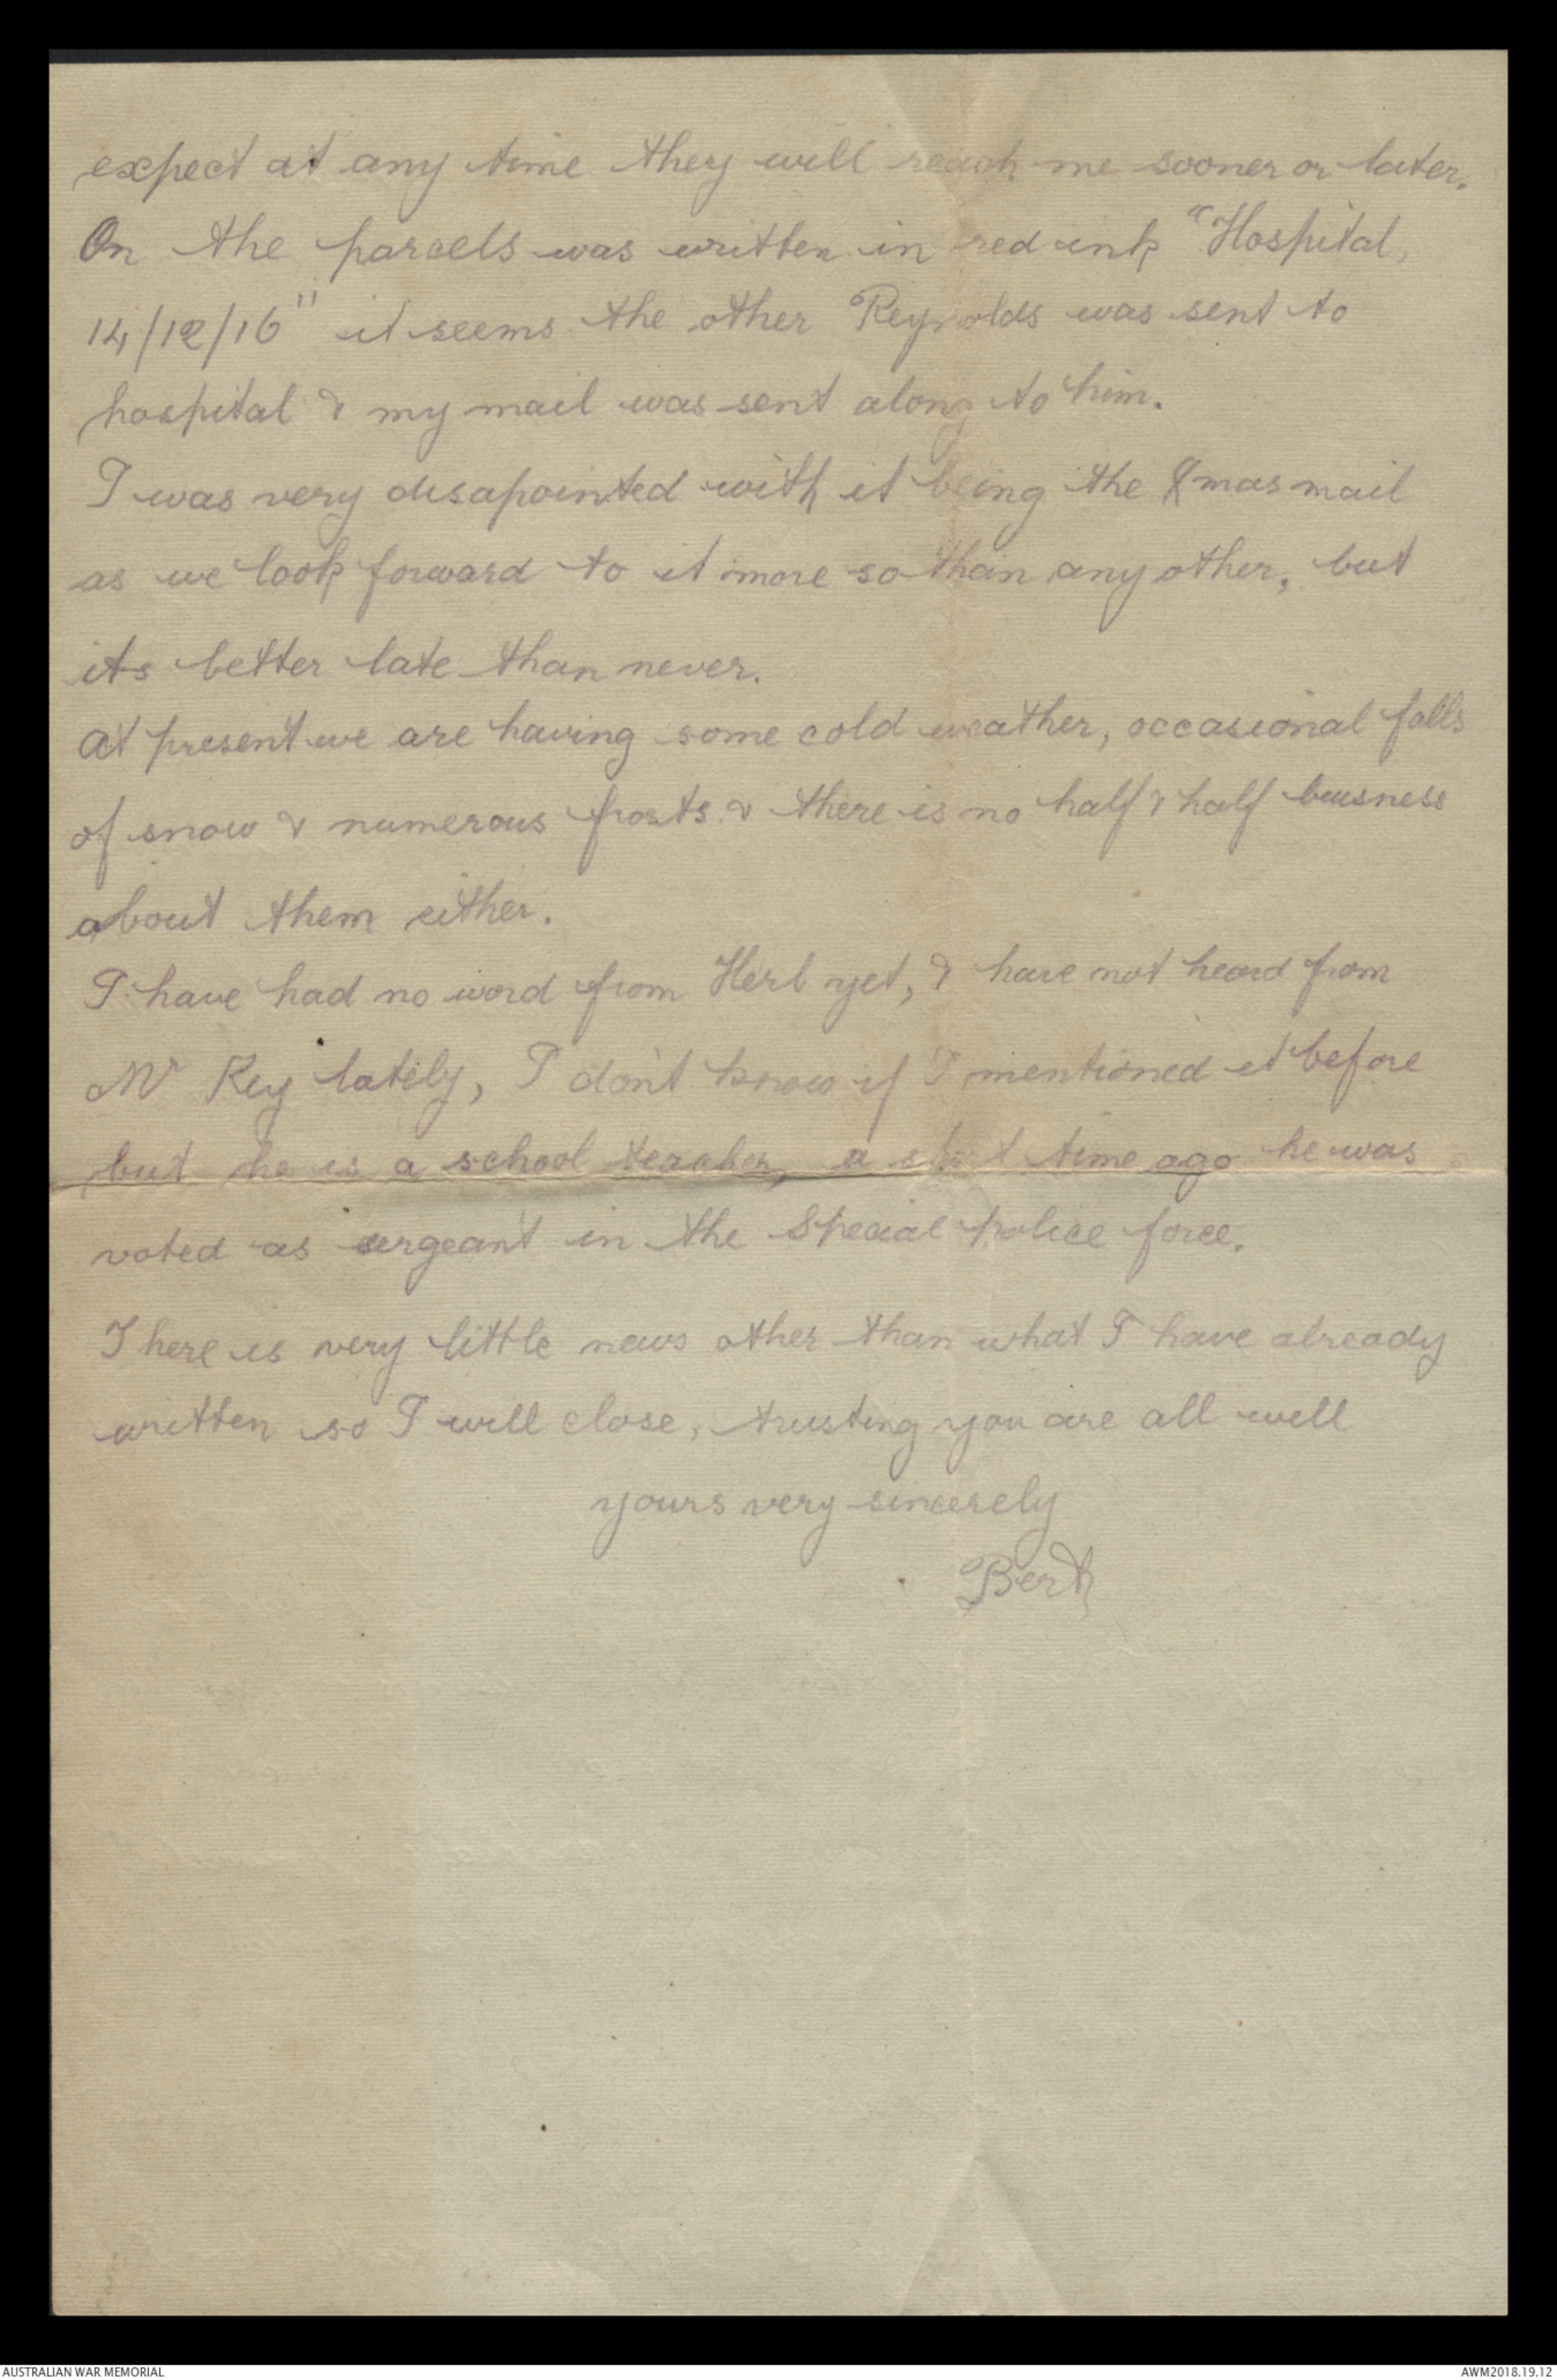 expect at any time they will reach me sooner or later.
On the parcels was written in red ink "Hospital,
14/12/16" it seems the other Reynolds was sent to
hospital & my mail was sent along to him.
I was very disapointed with it being the Xmas mail
as we look forward to it more so than any other, but
its better late than never.
At present we are having some cold weather, occasional falls
of snow & numerous frosts. & there is no half & half buisness
about them either.
I have had no word from Herb yet, & have not heard from
Mr Key lately, I don't know if I mentioned it before
but he is a school teacher, a short time ago he was
voted as sergeant in the Special police force.
There is very little news other than what I have already
written so I will close, trusting you are all well
yours very sincerely
Bert
AUSTRALIAN WAR MEMORIAL
AWM2018.19.12